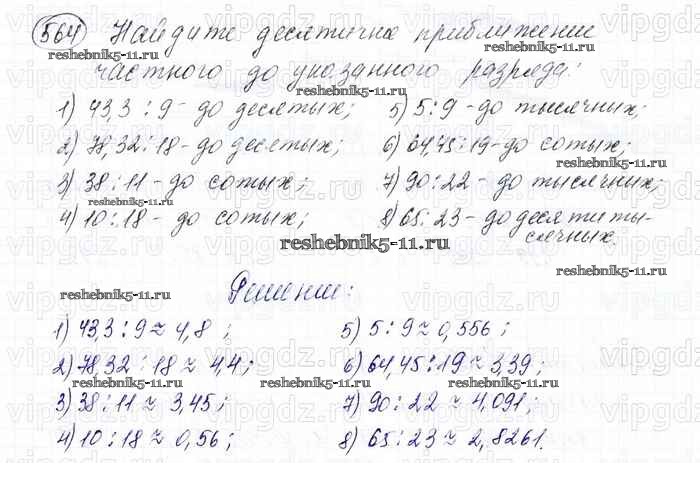 564 Найдите десятичное приближение
частного до указанного разряда:
1) 43,3 : 9 - до десятых; 5) 5 : 9 - до тысячных;
2) 78,32 : 18 - до десятых; 6) 64,45 : 19 - до сотых;
3) 38 : 11 - до сотых; 7) 90 : 22 - до тысячных;
4) 10 : 18 - до сотых; 8) 65 : 23 - до десятиты-
сячных.
Решение:
1) 43,3 : 9 ≈ 4,8 ; 5) 5 : 9 ≈ 0,556 ;
2) 78,32 : 18 ≈ 4,4 ; 6) 64,45 : 19 ≈ 3,39 ;
3) 38 : 11 ≈ 3,45 ; 7) 90 : 22 ≈ 4,091 ;
4) 10 : 18 ≈ 0,56 ; 8) 65 : 23 ≈ 2,8261.
reshebnik5-11.ru
vipgdz.ru